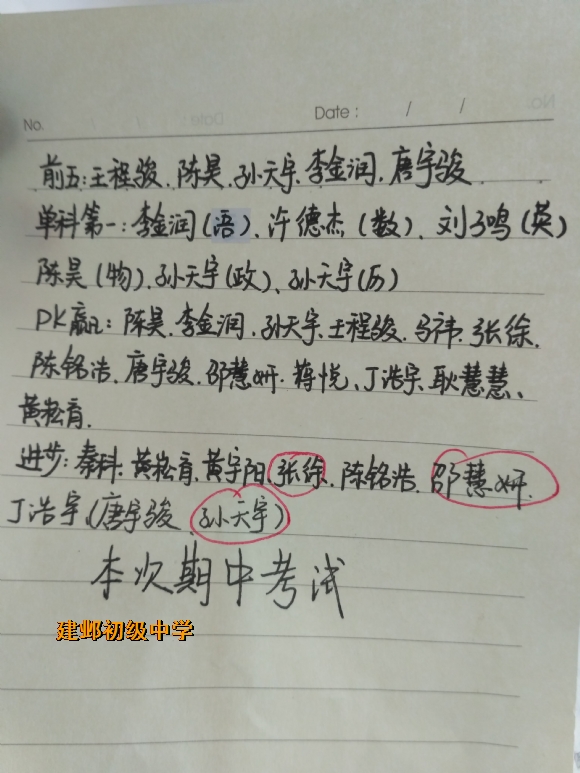 No.
Date: / /
前五:王程骏、陈昊、孙天宇、李金润、唐宇骏
单科第一:李金润(语)、许德杰(数)、刘子鸣(英)
陈昊(物)、孙天宇(政)、孙天宇(历)
PK赢:陈昊、李金润、孙天宇、王程骏、马祎、张徐、
陈铭浩、唐宇骏、邵慧妍、蒋悦、丁浩宇、耿慧慧、
黄崧育.
进步:秦科、黄崧育、黄宇阳、张徐、陈铭浩、邵慧妍、
丁浩宇、(唐宇骏、孙天宇)
本次期中考试
建邺初级中学